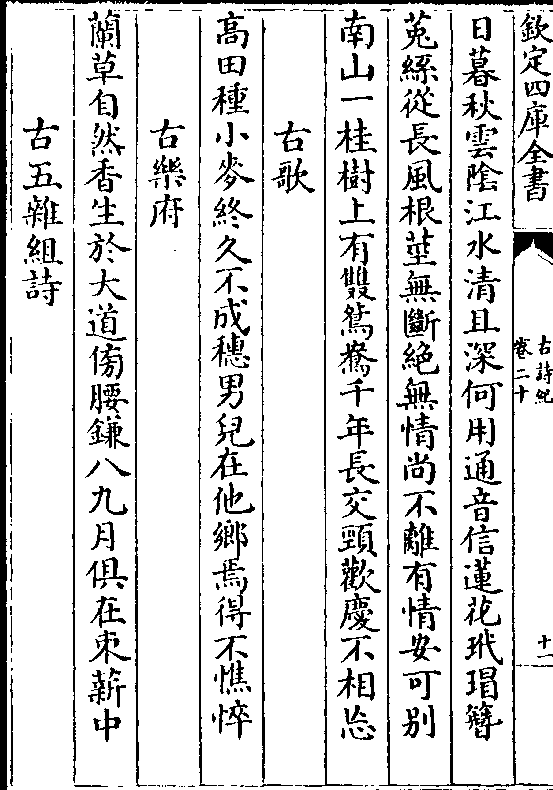 欽定四庫全書
古詩紀
卷二十
十一
日暮秋雲陰江水清且深何用通音信蓮花玳瑁簪
菟絲從長風根莖無斷絕無情尚不離有情安可别
南山一桂樹上有雙鴛鴦千年長交頸歡慶不相忘
古歌
高田種小麥終久不成穗男兒在他鄉焉得不憔悴
古樂府
蘭草自然香生於大道傍腰鎌八九月俱在束薪中
古五雜組詩